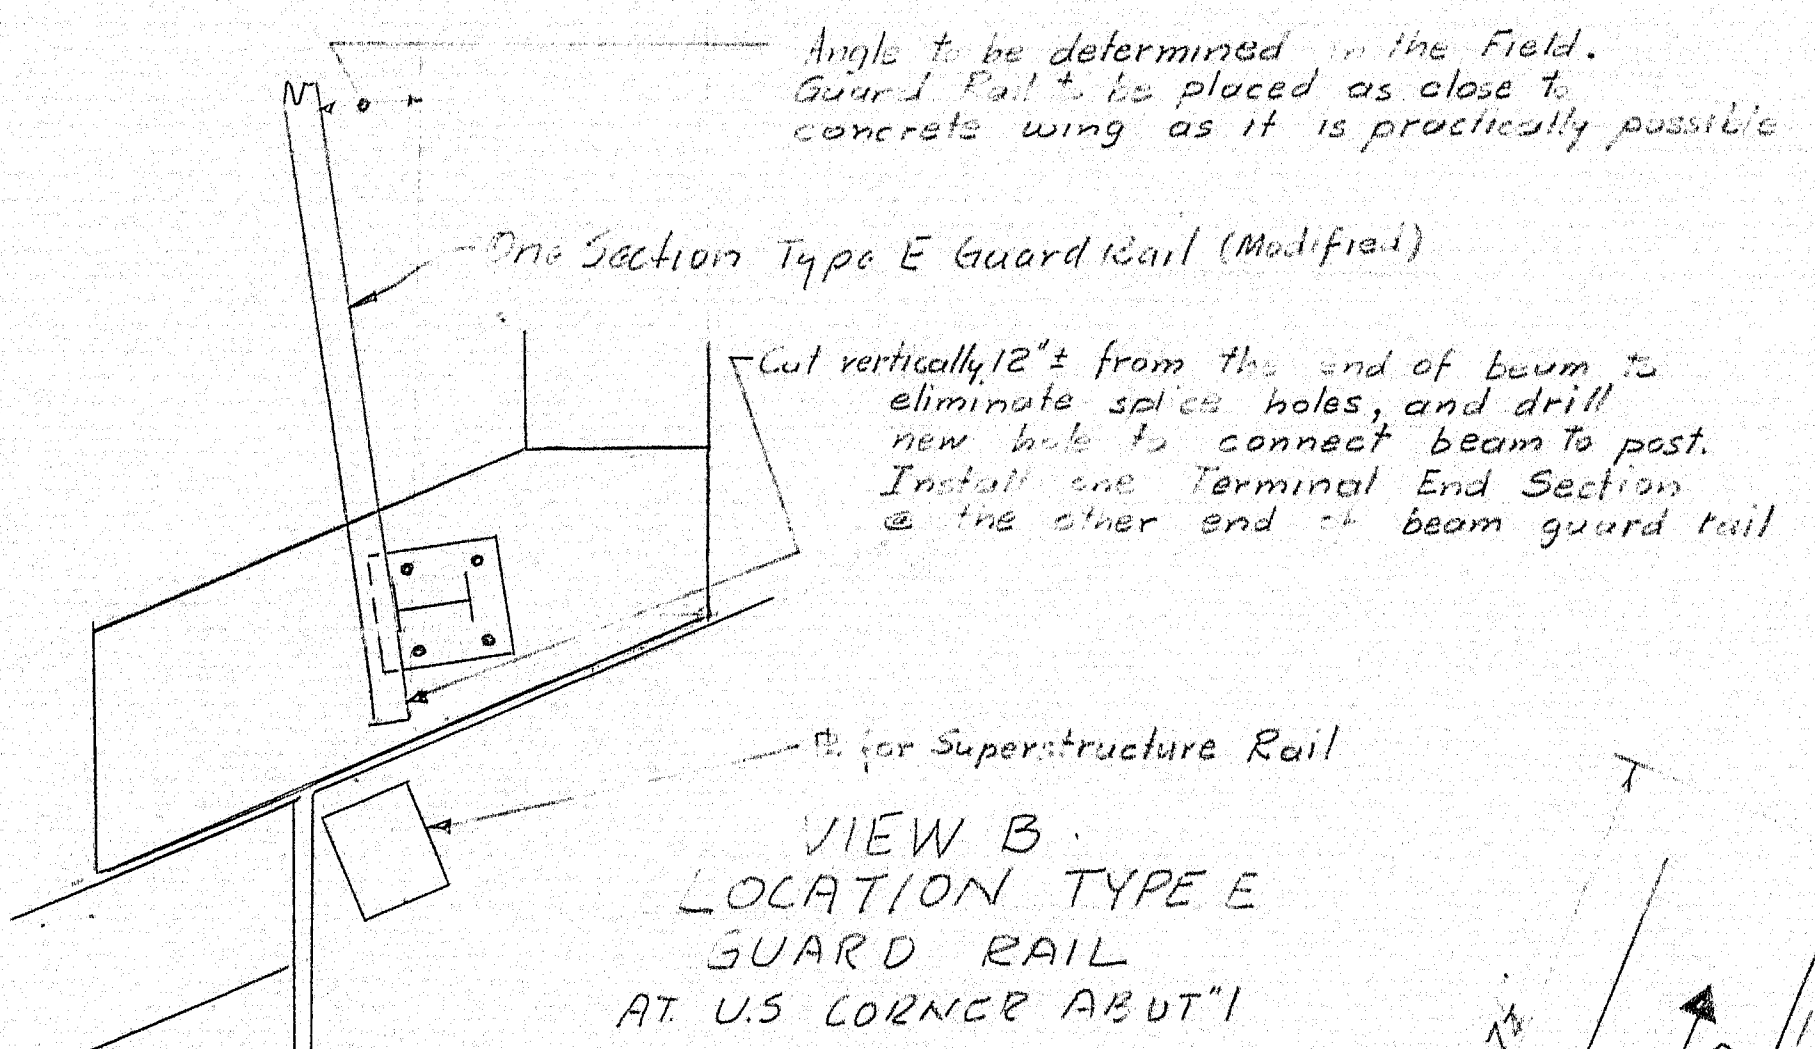 Angle to be determined in the Field.
Guard Rail to be placed as close to
concrete wing as it is practically possible
One Section Type E Guard Rail (Modified)
Cut vertically 12"± from the end of beam to
eliminate splice holes, and drill
new hole to connect beam To post.
Install one Terminal End Section
@ the other end of beam guard rail
℄ for Superstructure Rail
VIEW B
LOCATION TYPE E
GUARD RAIL
AT U.S CORNER ABUT"1